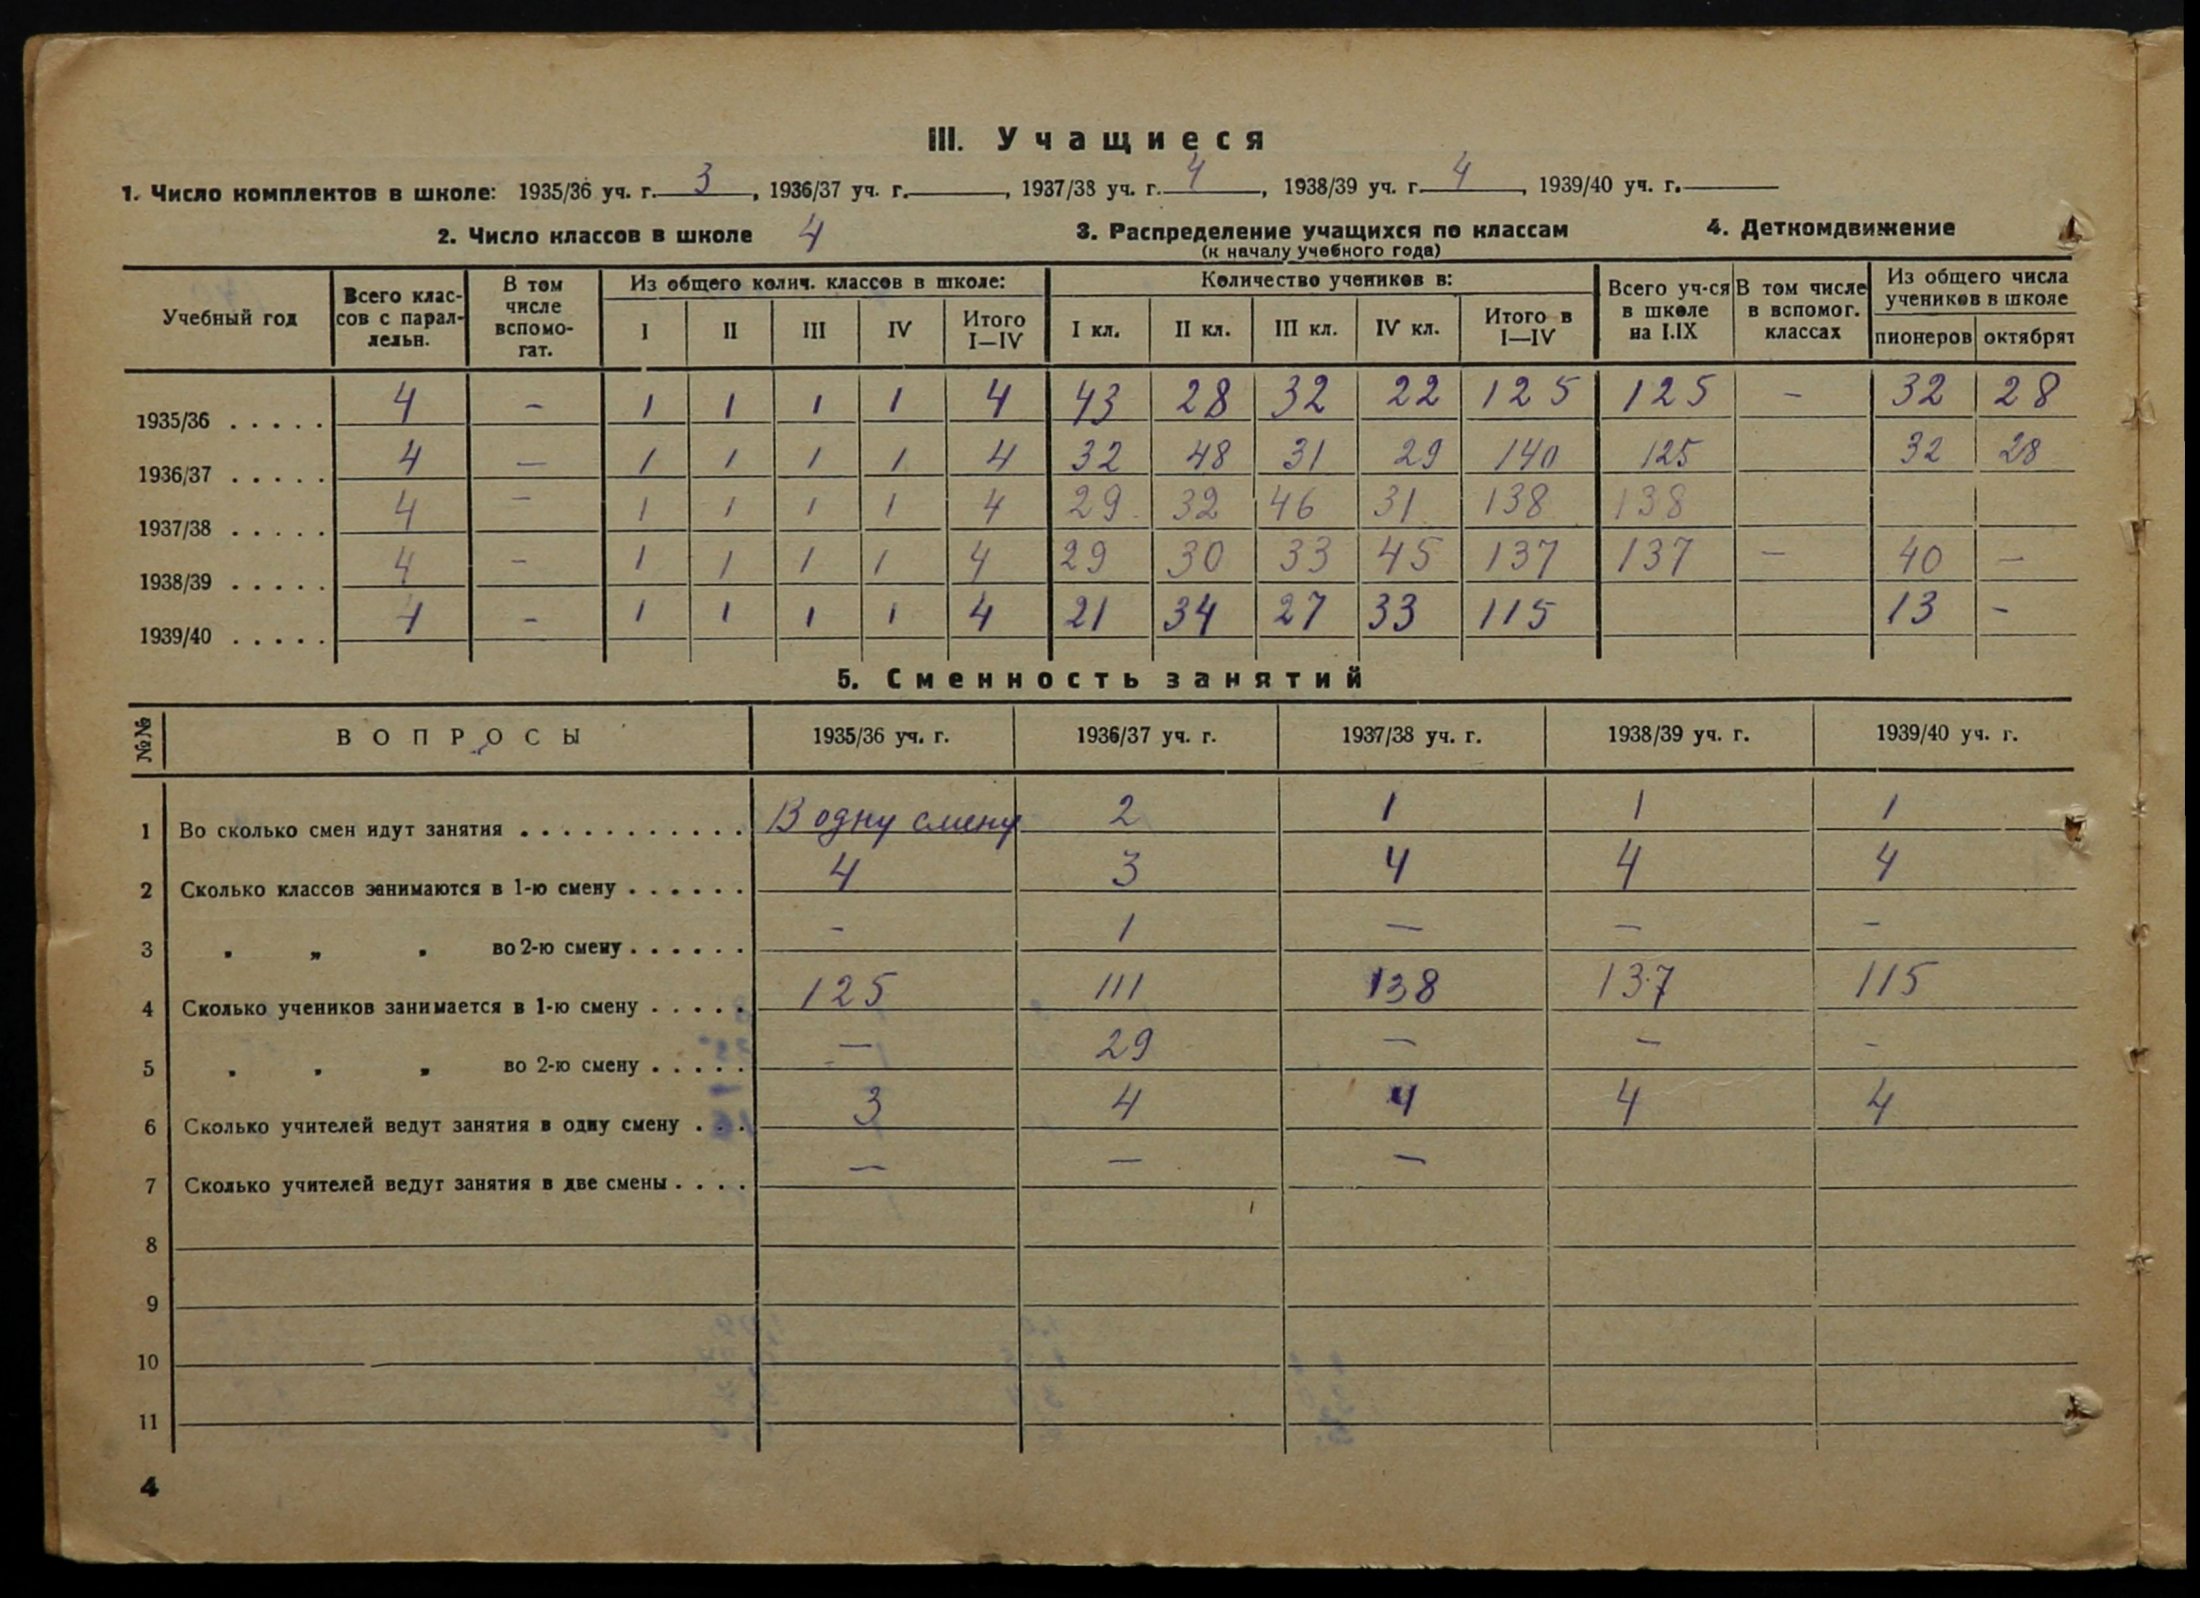 III. Учащиеся
1. Число комплектов в школе: 1935/36 уч. г. 3, 1936/37 уч. г. , 1937/38 уч. г. 4, 1938/39 уч. г. 4, 1939/40 уч. г.
2. Число классов в школе 4 3. Распределение учащихся по классам 4. Деткомдвижение
(к началу учебного года)
Учебный год | Всего классов с параллельн. | В том числе вспомогат. | Из общего колич. классов в школе: | Количество учеников в: | Всего уч-ся в школе на I.IX | В том числе в вспомог. классах | Из общего числа учеников в школе
I | II | III | IV | Итого I—IV | I кл. | II кл. | III кл. | IV кл. | Итого в I—IV | пионеров | октябрят
1935/36 ..... 4 – 1 1 1 1 4 43 28 32 22 125 125 – 32 28
1936/37 ..... 4 – 1 1 1 1 4 32 48 31 29 140 125 32 28
1937/38 ..... 4 – 1 1 1 1 4 29 32 46 31 138 138
1938/39 ..... 4 – 1 1 1 1 4 29 30 33 45 137 137 – 40 –
1939/40 ..... 4 – 1 1 1 1 4 21 34 27 33 115 13 –
5. Сменность занятий
№№ ВОПРОСЫ 1935/36 уч. г. 1936/37 уч. г. 1937/38 уч. г. 1938/39 уч. г. 1939/40 уч. г.
1 Во сколько смен идут занятия ........... В одну смену 2 1 1 1
2 Сколько классов занимаются в 1-ю смену ...... 4 3 4 4 4
3 „ „ „ во 2-ю смену ...... – 1 – – –
4 Сколько учеников занимается в 1-ю смену ..... 125 111 138 137 115
5 „ „ „ во 2-ю смену ..... – 29 – – –
6 Сколько учителей ведут занятия в одну смену ... 3 4 4 4 4
7 Сколько учителей ведут занятия в две смены .... – – –
8
9
10
11
4